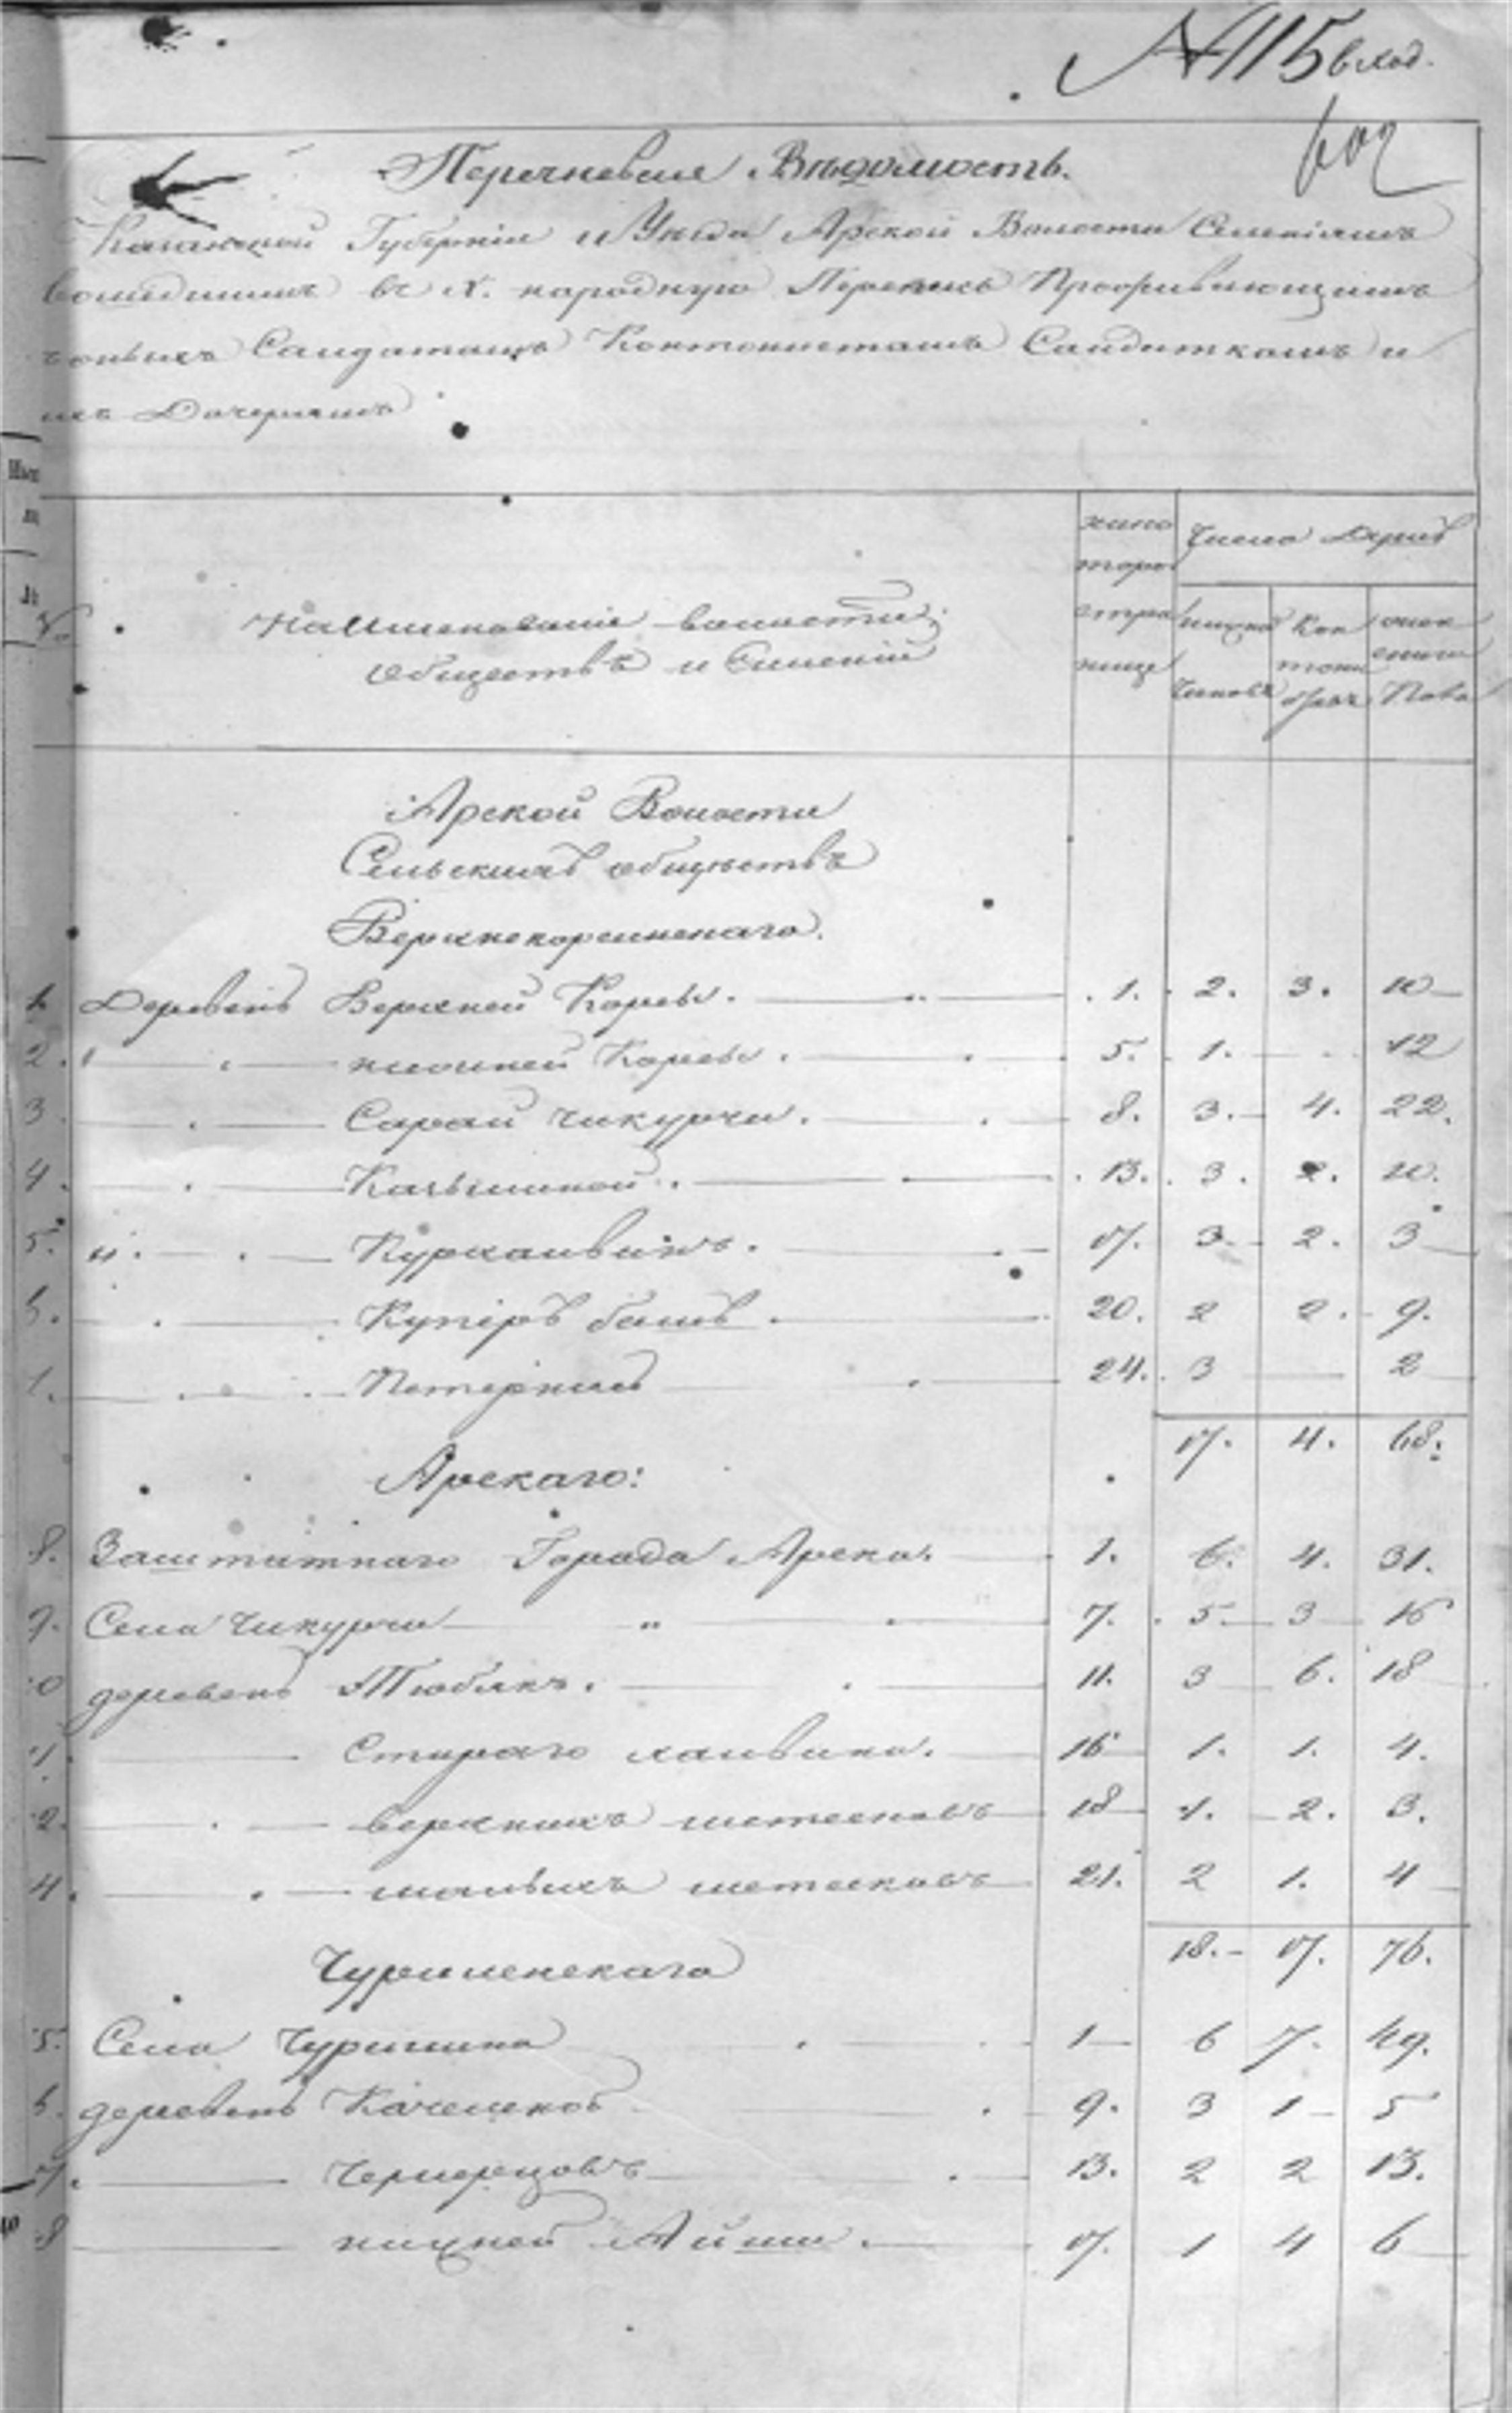 № 115 вход.
602
Перечневая Ведомость.
Казанской Губерніи и Уезда Арской Волости Селеніямъ
вошедшимъ въ X. народную Перепись Проживающимъ
Салдатамъ Кантонистамъ Салдаткамъ и
ихъ Дочерямъ
Наименованіе волости,
обществъ и Селеній
на ко
торой
стра
нице
Число Душъ
нижнихъ
Чиновъ
Кан
тони
стовъ
женс
каго
Пола
Арской Волости
Сельскихъ обществъ
Верхнекорсинскаго.
1. Деревень Верхней Корсы. 1. 2. 3. 10
2. нижней Корсы. 5. 1. 12
3. Сарай Чикурчи. 8. 3. 4. 22.
4. Качелиной. 13. 3. 2. 10.
5. Курхаивань. 17. 3. 2. 3
6. Купiръ башъ. 20. 2 2. 9.
7. 24. 3 2
17. 4. 68.
Арскаго:
8. Заштатнаго Города Арска. 1. 6. 4. 31.
9. Села Чикурчи 7. 5. 3 16
10 деревень Тюбякъ. 11. 3 6. 18
11. Стараго 16 1. 1. 4.
12. верхнихъ метесковъ 18 1. 2. 3.
14. малыхъ метесковъ 21. 2 1. 4
18. 17. 76.
Чурилинскаго
15. Села Чурилина 1 6 7. 49.
16. деревень Качелиновъ 9. 3 1 5
17. Чемерцовъ 13. 2 2 13.
18 нижней Айши. 17. 1 4 6